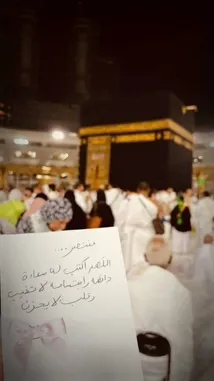 اللهم أكتب له سعادة
دائماً ابتسامة لا تغيب
وقلب لا يحزن